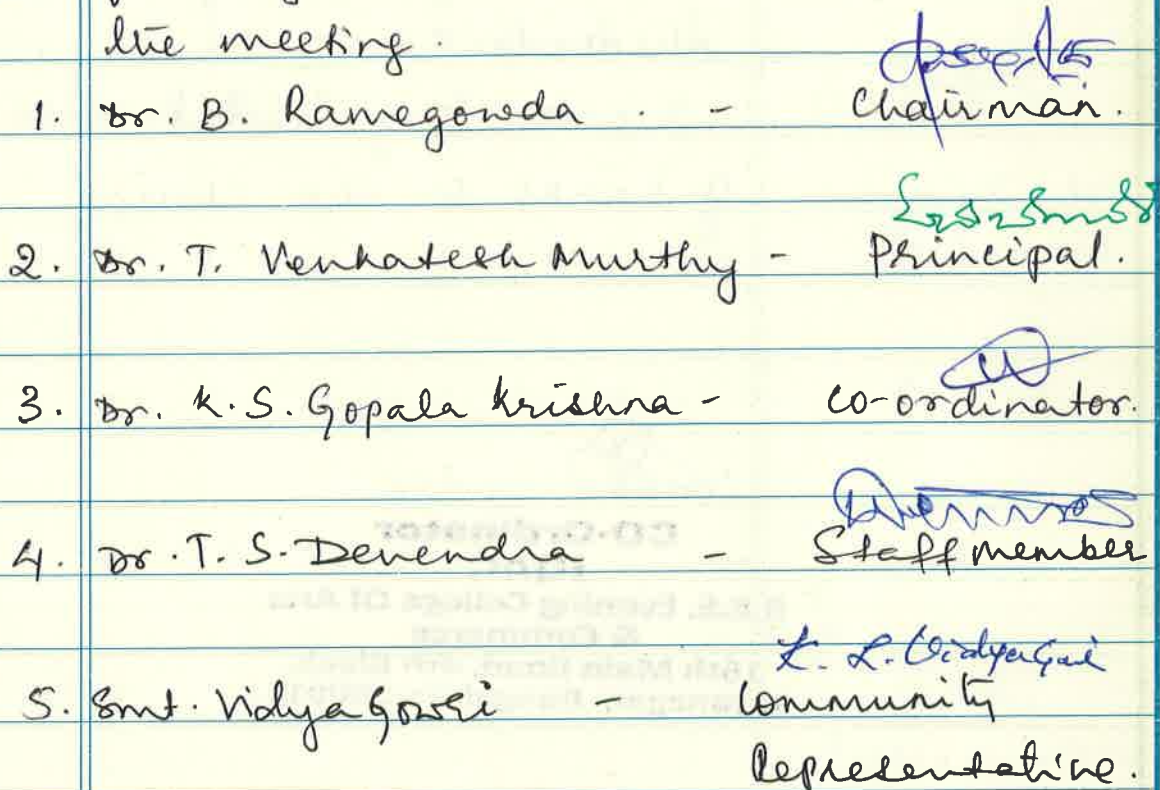 the meeting.
1. Dr. B. Ramegowda . - Chairman.
2. Dr. T. Venkatesh Murthy - Principal.
3. Dr. K. S. Gopala Krishna - Co-ordinator.
4. Dr. T. S. Devendra - Staff member
K. L. Vidya Gowri
5. Smt. Vidya Gowri - Community
Representative.